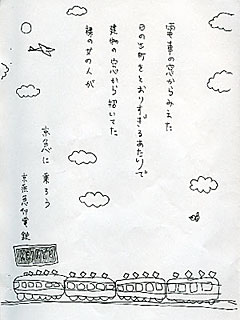 電車の窓からみえた
日の出町をとおりすぎるあたりで
建物の窓から招いてた
裸の女の人が
京急に乗ろう
京浜急行電鉄